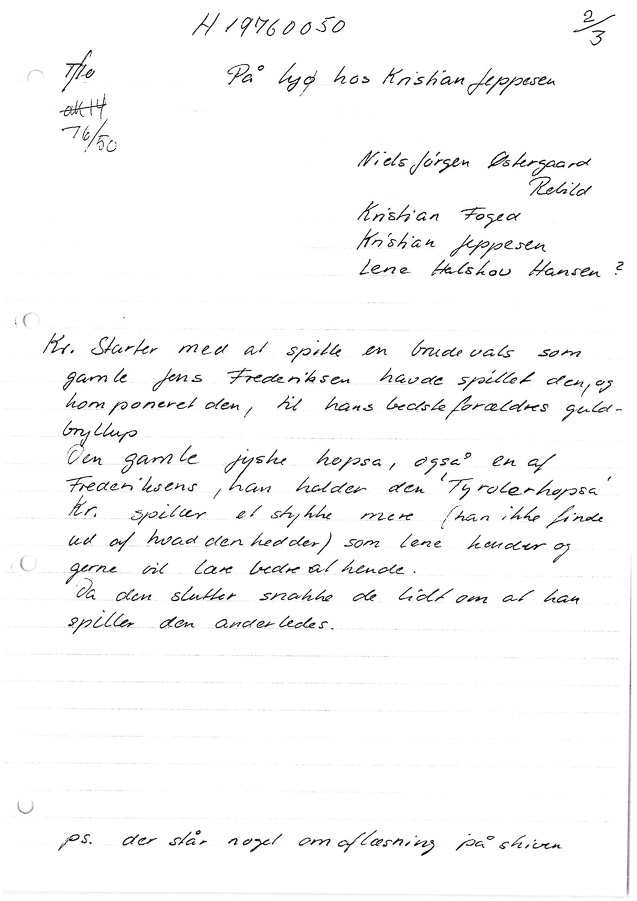 H 19760050
2/3
T/10
På Lyø hos Kristian Jeppesen
ak 14
76/50
Niels Jörgen Østergaard
Rebild
Kristian Foged
Kristian Jeppesen
Lene Halskov Hansen ?
Kr. Starter med at spille en brudevals som
gamle Jens Frederiksen havde spillet den, og
komponeret den, til hans bedsteforældres guld-
bryllup
Den gamle jyske hopsa, også en af
Frederiksens, han kalder den 'Tyrolerhopsa'
Kr. spiller et stykke mere (kan ikke finde
ud af hvad den hedder) som Lene kender og
gerne vil lære bedre at kende.
Da den slutter snakke de lidt om at han
spiller den anderledes.
ps. der står noget om aflæsning på skiven